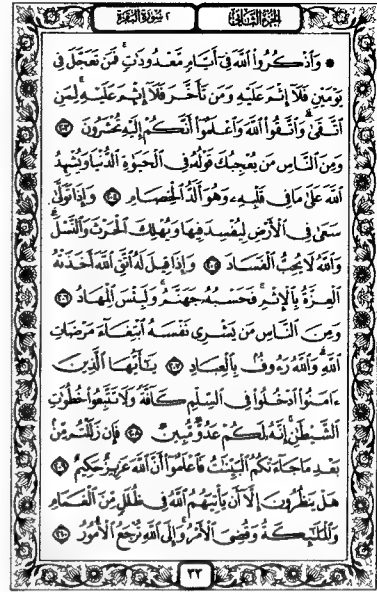 الجزء الثانى
٢ سورة البقرة
۞ وَٱذۡكُرُواْ ٱللَّهَ فِيٓ أَيَّامٖ مَّعۡدُودَٰتٖۚ فَمَن تَعَجَّلَ فِي
يَوۡمَيۡنِ فَلَآ إِثۡمَ عَلَيۡهِ وَمَن تَأَخَّرَ فَلَآ إِثۡمَ عَلَيۡهِۖ لِمَنِ
ٱتَّقَىٰۗ وَٱتَّقُواْ ٱللَّهَ وَٱعۡلَمُوٓاْ أَنَّكُمۡ إِلَيۡهِ تُحۡشَرُونَ ٢٠٣
وَمِنَ ٱلنَّاسِ مَن يُعۡجِبُكَ قَوۡلُهُۥ فِي ٱلۡحَيَوٰةِ ٱلدُّنۡيَا وَيُشۡهِدُ
ٱللَّهَ عَلَىٰ مَا فِي قَلۡبِهِۦ وَهُوَ أَلَدُّ ٱلۡخِصَامِ ٢٠٤ وَإِذَا تَوَلَّىٰ
سَعَىٰ فِي ٱلۡأَرۡضِ لِيُفۡسِدَ فِيهَا وَيُهۡلِكَ ٱلۡحَرۡثَ وَٱلنَّسۡلَۚ
وَٱللَّهُ لَا يُحِبُّ ٱلۡفَسَادَ ٢٠٥ وَإِذَا قِيلَ لَهُ ٱتَّقِ ٱللَّهَ أَخَذَتۡهُ
ٱلۡعِزَّةُ بِٱلۡإِثۡمِۚ فَحَسۡبُهُۥ جَهَنَّمُۖ وَلَبِئۡسَ ٱلۡمِهَادُ ٢٠٦
وَمِنَ ٱلنَّاسِ مَن يَشۡرِي نَفۡسَهُ ٱبۡتِغَآءَ مَرۡضَاتِ
ٱللَّهِۚ وَٱللَّهُ رَءُوفُۢ بِٱلۡعِبَادِ ٢٠٧ يَٰٓأَيُّهَا ٱلَّذِينَ
ءَامَنُواْ ٱدۡخُلُواْ فِي ٱلسِّلۡمِ كَآفَّةٗ وَلَا تَتَّبِعُواْ خُطُوَٰتِ
ٱلشَّيۡطَٰنِۚ إِنَّهُۥ لَكُمۡ عَدُوّٞ مُّبِينٞ ٢٠٨ فَإِن زَلَلۡتُم مِّنۢ
بَعۡدِ مَا جَآءَتۡكُمُ ٱلۡبَيِّنَٰتُ فَٱعۡلَمُوٓاْ أَنَّ ٱللَّهَ عَزِيزٌ حَكِيمٌ ٢٠٩
هَلۡ يَنظُرُونَ إِلَّآ أَن يَأۡتِيَهُمُ ٱللَّهُ فِي ظُلَلٖ مِّنَ ٱلۡغَمَامِ
وَٱلۡمَلَٰٓئِكَةُ وَقُضِيَ ٱلۡأَمۡرُۚ وَإِلَى ٱللَّهِ تُرۡجَعُ ٱلۡأُمُورُ ٢١٠
٣٢